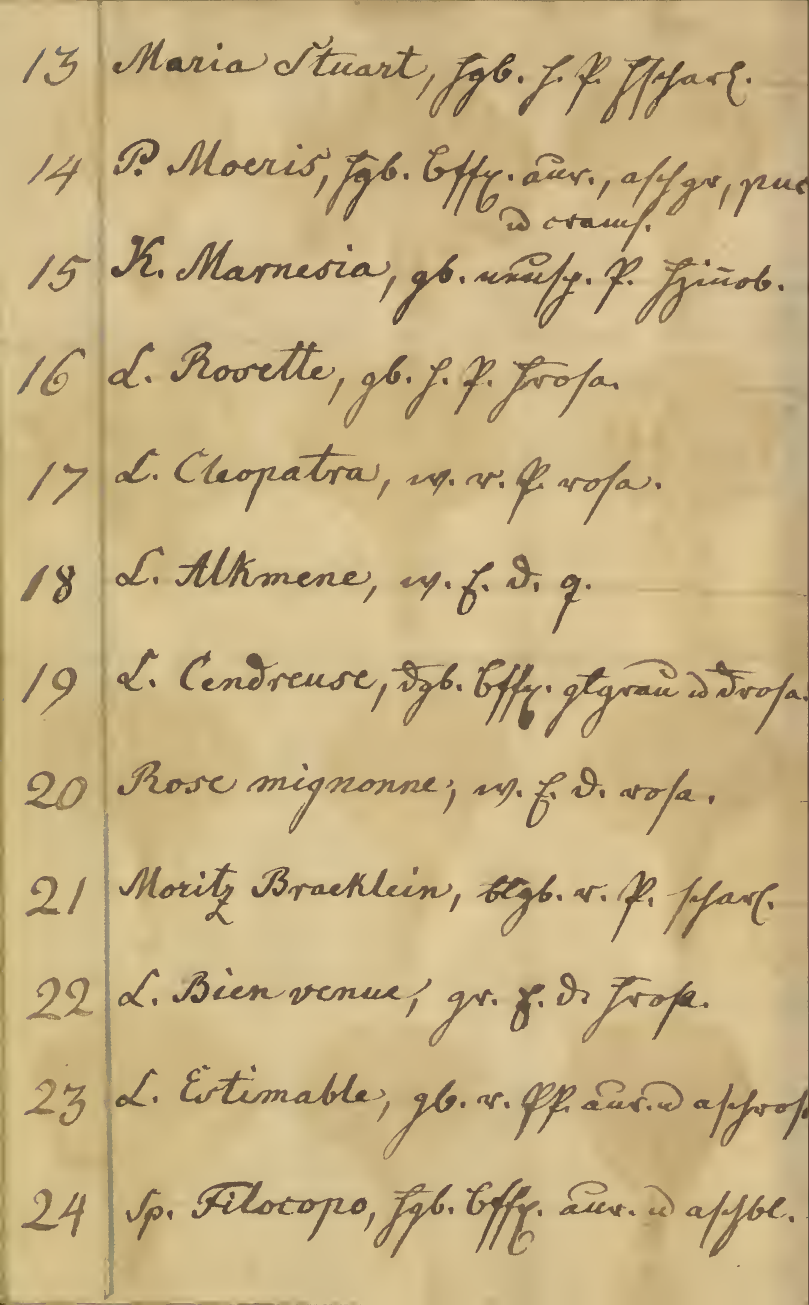 13 Maria Stuart, hgb. h. P. hscharl.
14 P. Moeris, hgb. Bffx. aur., aschgr, puc
u crams.
15 K. Marnesia, gb. neusp. P. hzinob.
16 L. Rosette, gb. h. P. hrosa.
17 L. Cleopatra, w. r. P. rosa.
18 L. Alkmene, w. f. d.
19 L. Cendreuse, dgb. Bffx. gtgrau u drosa.
20 Rose mignonne, w. f. d. rosa.
21 Moritz Braeklein, blgb. r. P. scharl.
22 L. Bien venue, gr. f. d. hrosa.
23 L. Estimable, gb. r. PP. aur. u aschros
24 Sp. Filocopo, hgb. Bffx. aur. u aschbl.